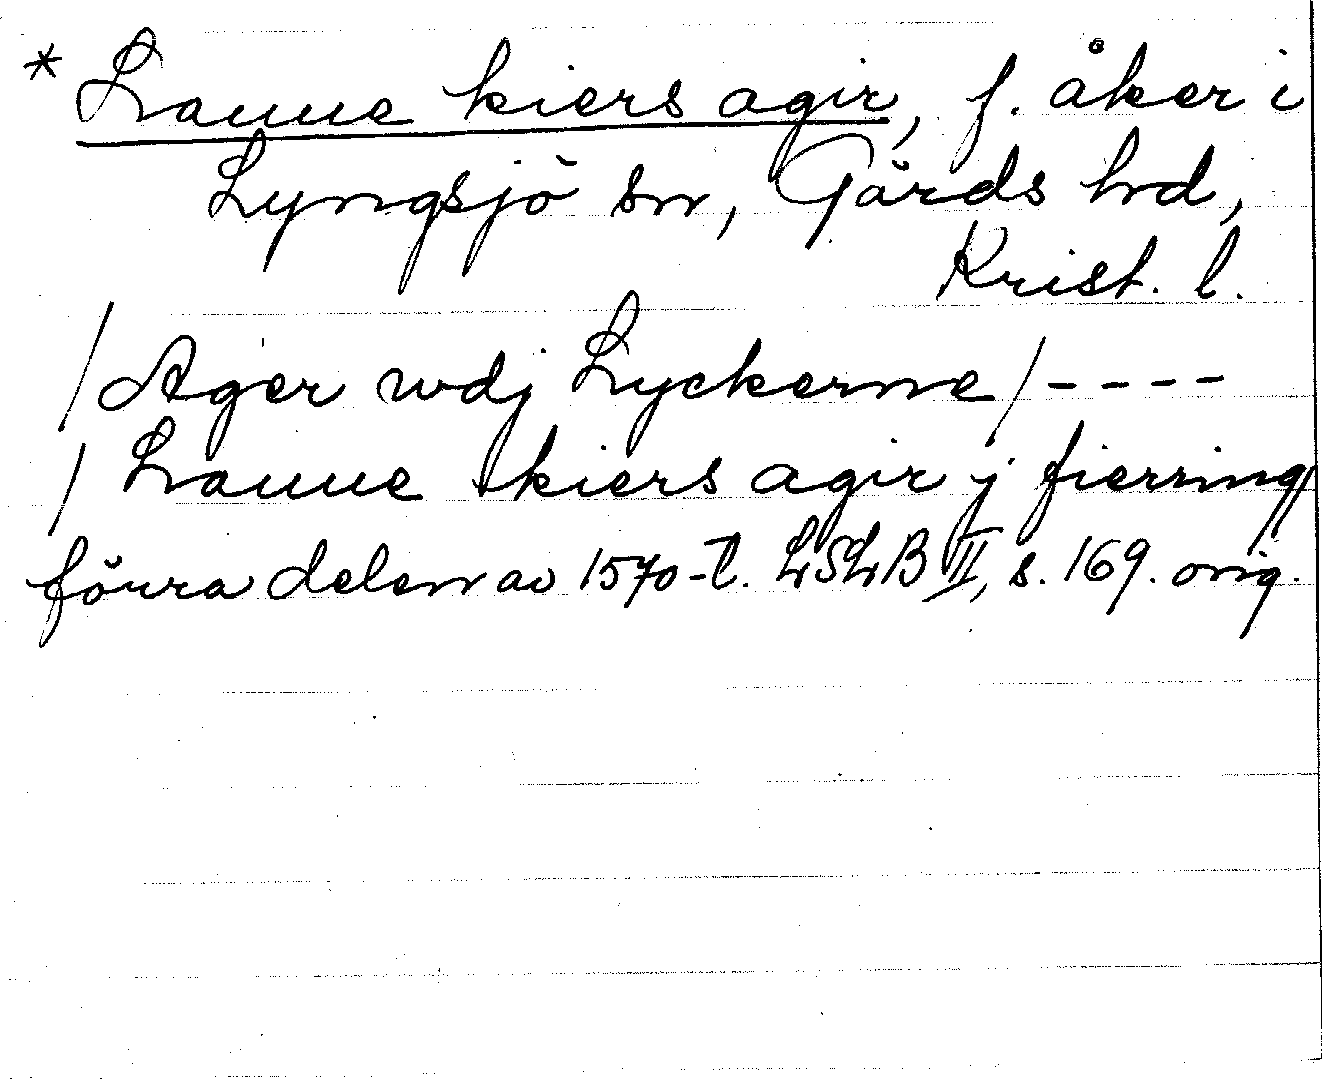 * Laune kiers agir, f. åker i
Lyngsjö sn, Gärds hd,
Krist. l.
/ Ager wdj Lyckerne /----
/ Laune kiers agir j fierring /
förra delen av 1570-t. LSLB II, s. 169. orig.